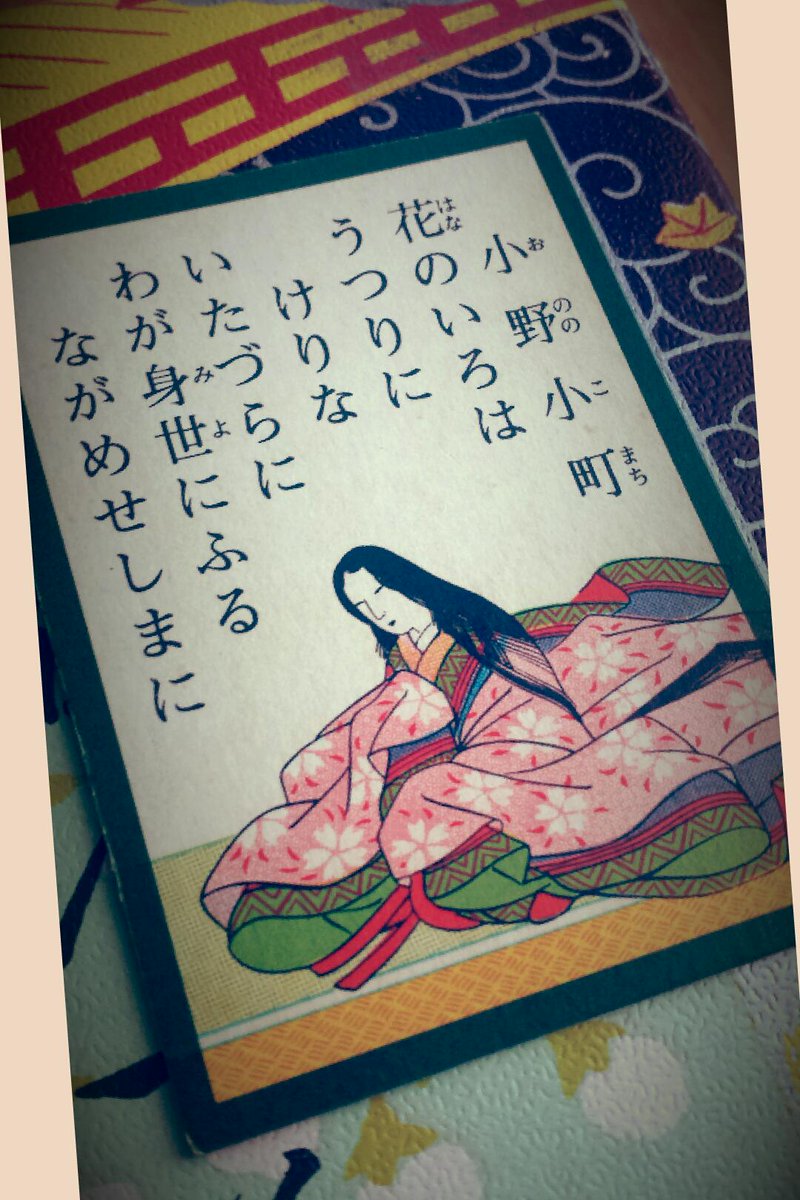 小野小町
花のいろは
うつりに
けりな
いたづらに
わが身世にふる
ながめせしまに